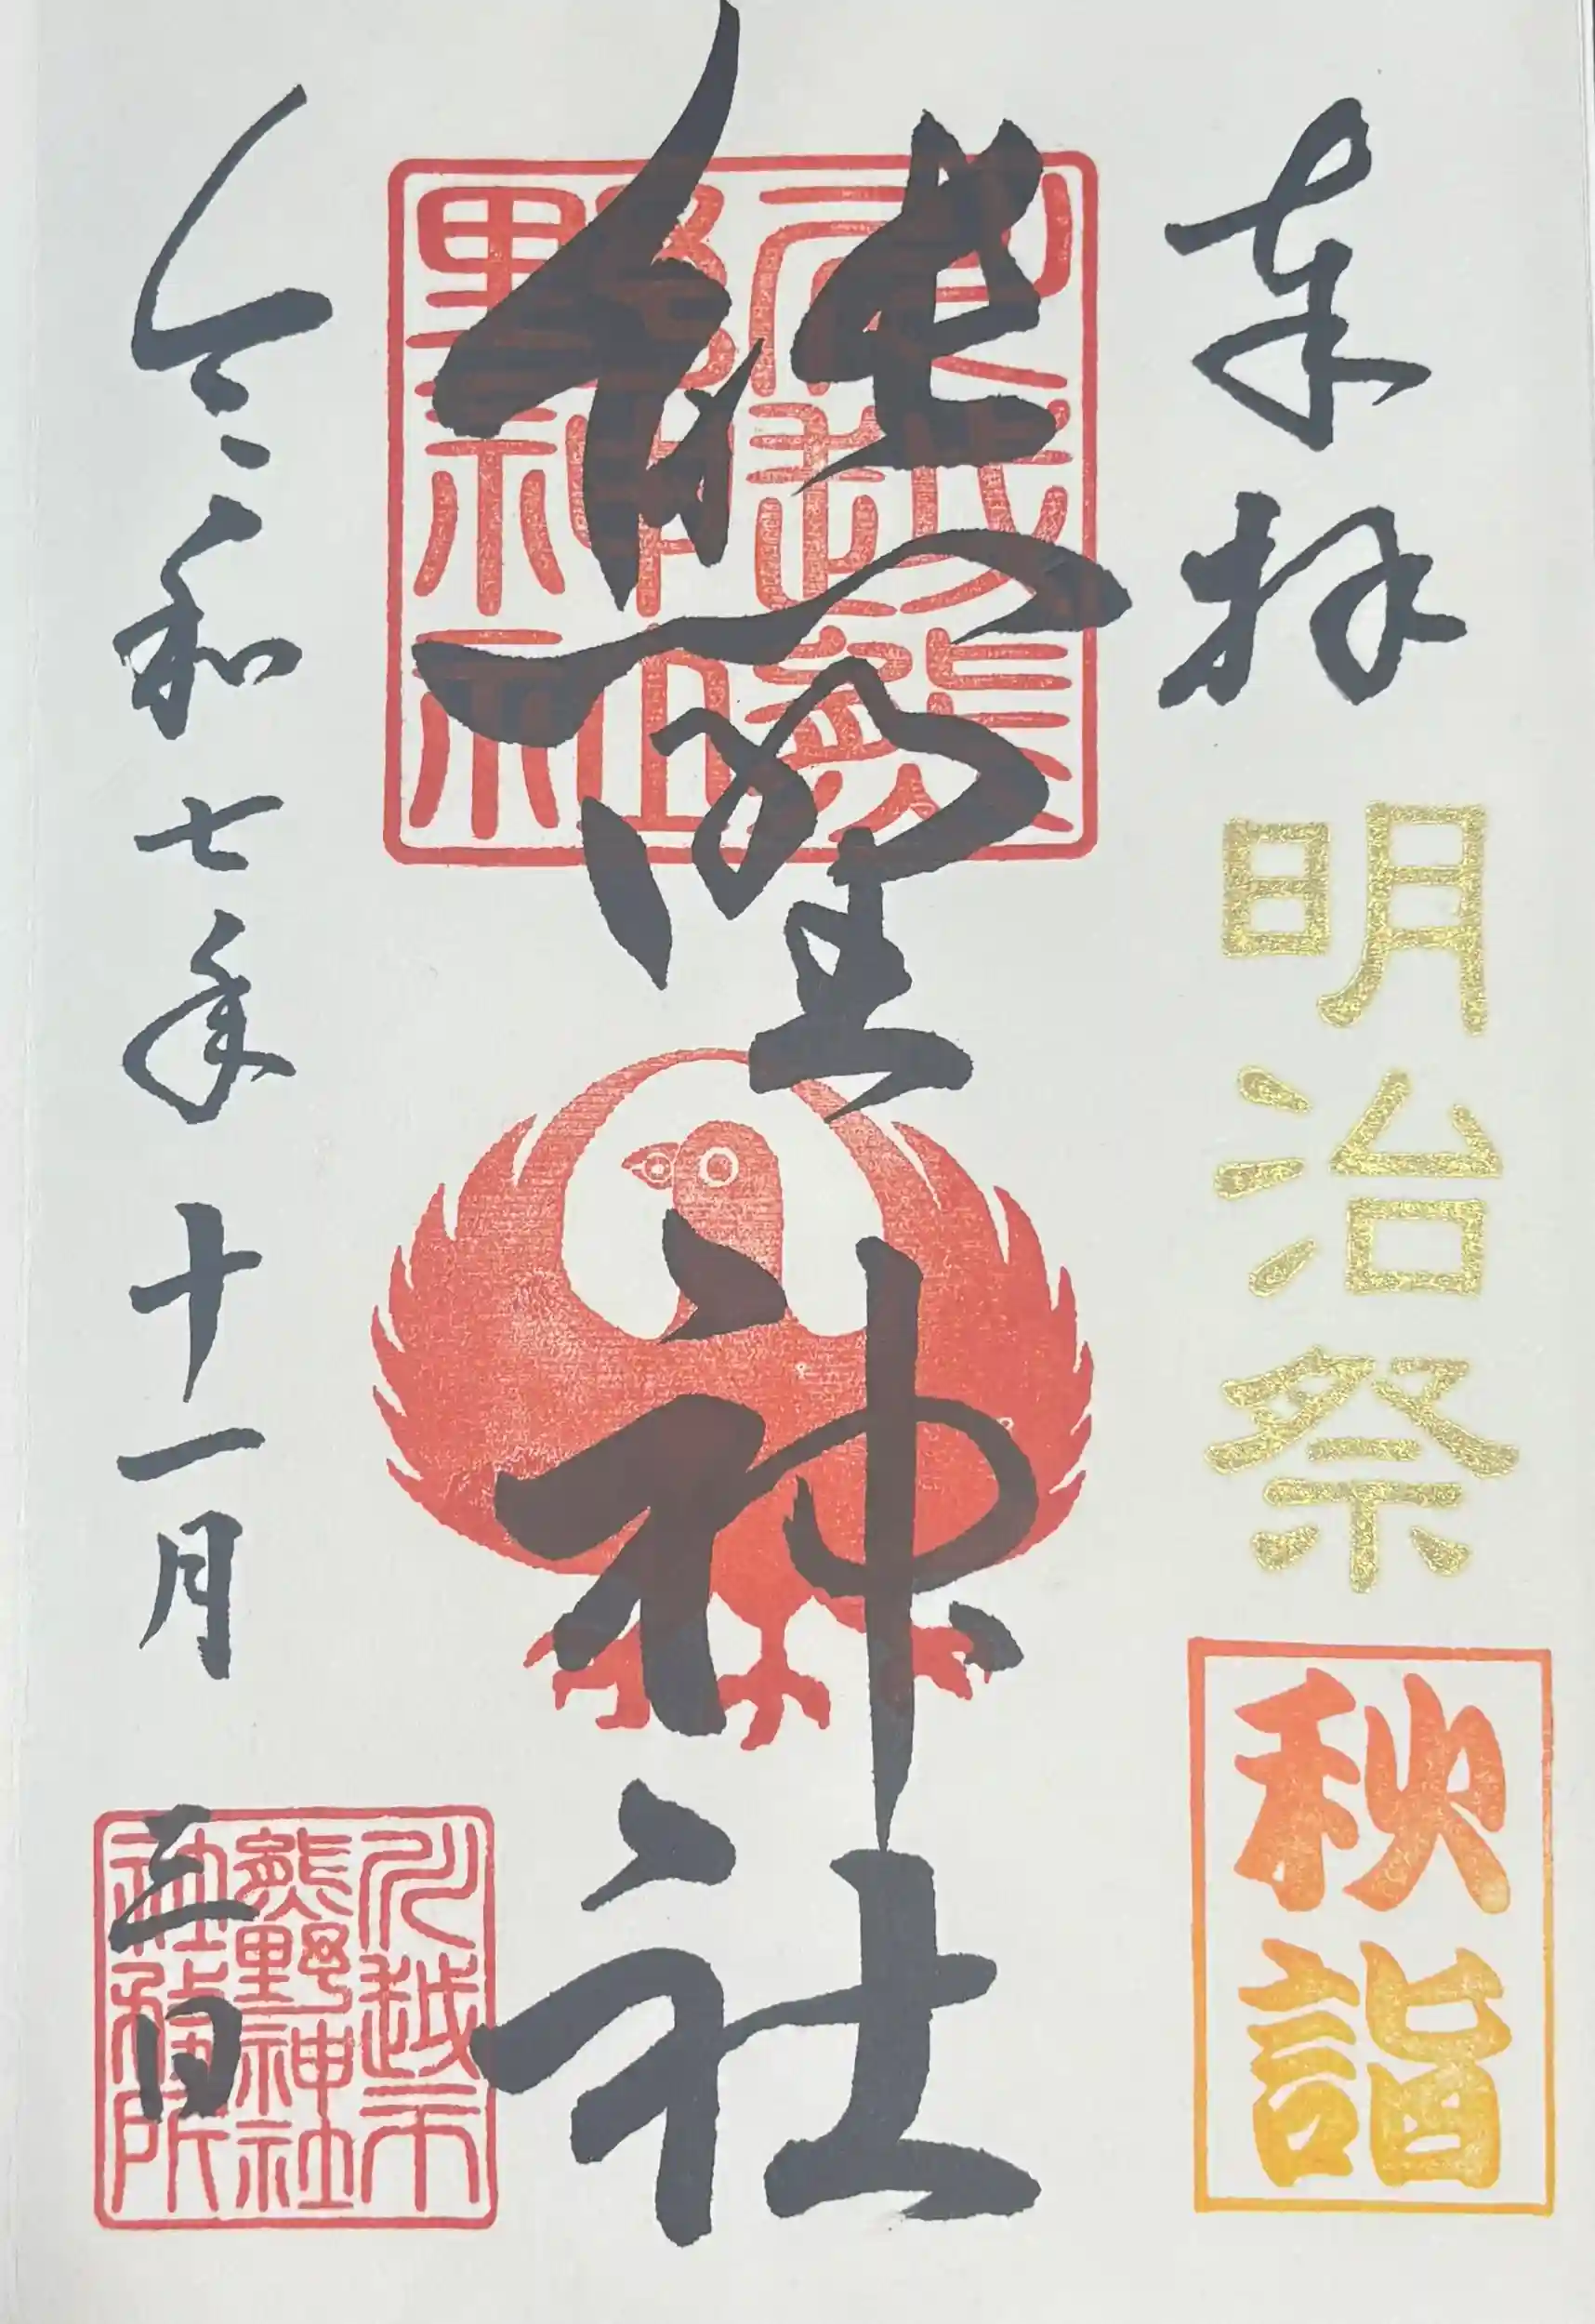 奉拝
明治祭
秋詣
川越熊
野神社
熊野神社
令和七年十一月三日
川越市
熊野神社
社務所